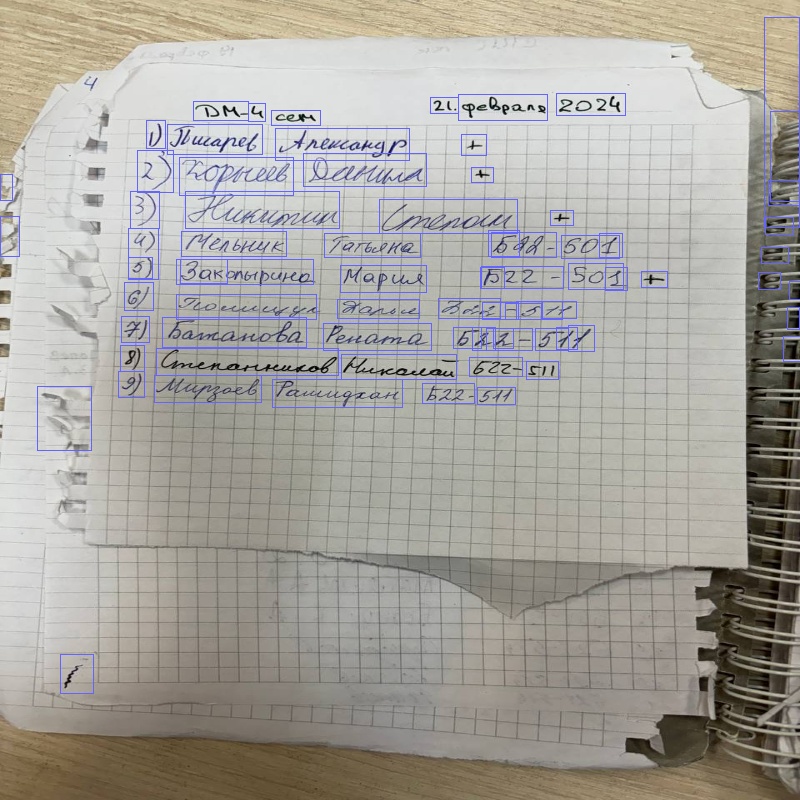 4
ДМ-4 сем 21. февраля 2024
1) Писарев Александр +
2) Корнеев Данила +
3) Никитин Степан +
4) Мельник Татьяна Б22-501
5) Закопырина Мария Б22-501 +
6) Полищук Дарья Б22-511
7) Бажанова Рената Б22-511
8) Степанников Николай Б22-511
9) Мирзоев Рашидхан Б22-511